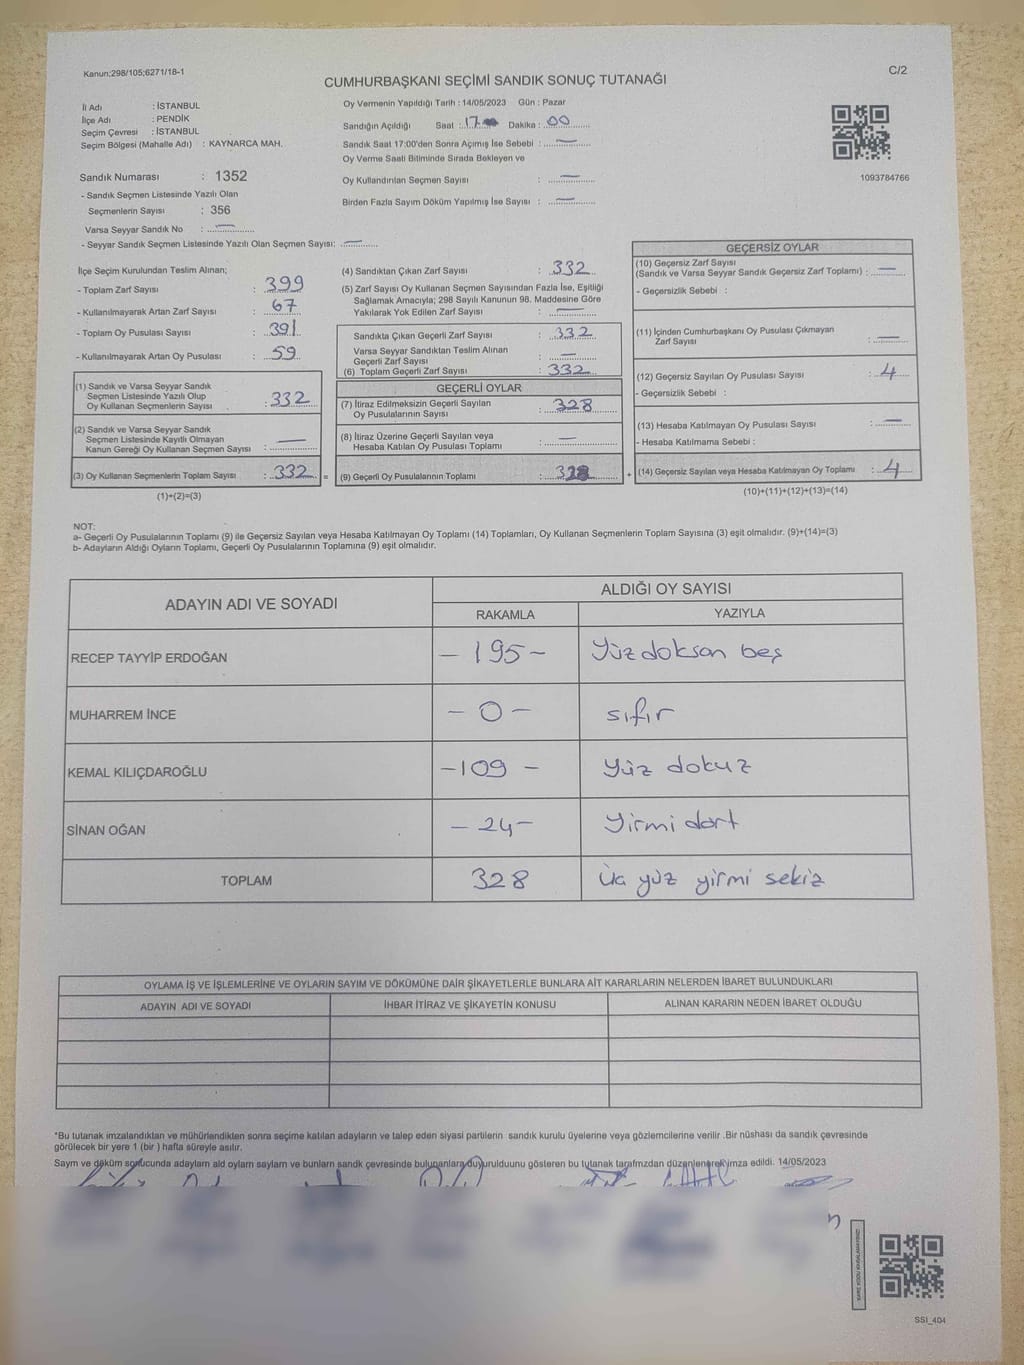 Kanun;298/105;6271/18-1
C/2
CUMHURBAŞKANI SEÇİMİ SANDIK SONUÇ TUTANAĞI
İl Adı : İSTANBUL
İlçe Adı : PENDİK
Seçim Çevresi : İSTANBUL
Seçim Bölgesi (Mahalle Adı) : KAYNARCA MAH.
Sandık Numarası : 1352
- Sandık Seçmen Listesinde Yazılı Olan
Seçmenlerin Sayısı : 356
Varsa Seyyar Sandık No : —
- Seyyar Sandık Seçmen Listesinde Yazılı Olan Seçmen Sayısı: —
Oy Vermenin Yapıldığı Tarih : 14/05/2023 Gün : Pazar
Sandığın Açıldığı Saat : 17 Dakika : 00
Sandık Saat 17:00'den Sonra Açımış İse Sebebi : —
Oy Verme Saati Bitiminde Sırada Bekleyen ve
Oy Kullandırılan Seçmen Sayısı : —
Birden Fazla Sayım Döküm Yapılmış İse Sayısı : —
1093784766
İlçe Seçim Kurulundan Teslim Alınan;
- Toplam Zarf Sayısı : 399
- Kullanılmayarak Artan Zarf Sayısı : 67
- Toplam Oy Pusulası Sayısı : 391
- Kullanılmayarak Artan Oy Pusulası : 59
(1) Sandık ve Varsa Seyyar Sandık
Seçmen Listesinde Yazılı Olup
Oy Kullanan Seçmenlerin Sayısı : 332
(2) Sandık ve Varsa Seyyar Sandık
Seçmen Listesinde Kayıtlı Olmayan
Kanun Gereği Oy Kullanan Seçmen Sayısı : —
(3) Oy Kullanan Seçmenlerin Toplam Sayısı : 332 =
(1)+(2)=(3)
(4) Sandıktan Çıkan Zarf Sayısı : 332
(5) Zarf Sayısı Oy Kullanan Seçmen Sayısından Fazla İse, Eşitliği
Sağlamak Amacıyla; 298 Sayılı Kanunun 98. Maddesine Göre
Yakılarak Yok Edilen Zarf Sayısı : —
Sandıkta Çıkan Geçerli Zarf Sayısı : 332
Varsa Seyyar Sandıktan Teslim Alınan
Geçerli Zarf Sayısı : —
(6) Toplam Geçerli Zarf Sayısı : 332
GEÇERLİ OYLAR
(7) İtiraz Edilmeksizin Geçerli Sayılan
Oy Pusulalarının Sayısı : 328
(8) İtiraz Üzerine Geçerli Sayılan veya
Hesaba Katılan Oy Pusulası Toplamı : —
(9) Geçerli Oy Pusulalarının Toplamı : 328 +
GEÇERSİZ OYLAR
(10) Geçersiz Zarf Sayısı
(Sandık ve Varsa Seyyar Sandık Geçersiz Zarf Toplamı) : —
- Geçersizlik Sebebi :
(11) İçinden Cumhurbaşkanı Oy Pusulası Çıkmayan
Zarf Sayısı : —
(12) Geçersiz Sayılan Oy Pusulası Sayısı : 4
- Geçersizlik Sebebi :
(13) Hesaba Katılmayan Oy Pusulası Sayısı : —
- Hesaba Katılmama Sebebi :
(14) Geçersiz Sayılan veya Hesaba Katılmayan Oy Toplamı : 4
(10)+(11)+(12)+(13)=(14)
NOT:
a- Geçerli Oy Pusulalarının Toplamı (9) ile Geçersiz Sayılan veya Hesaba Katılmayan Oy Toplamı (14) Toplamları, Oy Kullanan Seçmenlerin Toplam Sayısına (3) eşit olmalıdır. (9)+(14)=(3)
b- Adayların Aldığı Oyların Toplamı, Geçerli Oy Pusulalarının Toplamına (9) eşit olmalıdır.
ADAYIN ADI VE SOYADI
ALDIĞI OY SAYISI
RAKAMLA YAZIYLA
RECEP TAYYİP ERDOĞAN - 195 - Yüz doksan beş
MUHARREM İNCE - 0 - sıfır
KEMAL KILIÇDAROĞLU -109 - Yüz dokuz
SİNAN OĞAN - 24- Yirmi dört
TOPLAM 328 Üç yüz yirmi sekiz
OYLAMA İŞ VE İŞLEMLERİNE VE OYLARIN SAYIM VE DÖKÜMÜNE DAİR ŞİKAYETLERLE BUNLARA AİT KARARLARIN NELERDEN İBARET BULUNDUKLARI
ADAYIN ADI VE SOYADI İHBAR İTİRAZ VE ŞİKAYETİN KONUSU ALINAN KARARIN NEDEN İBARET OLDUĞU
*Bu tutanak imzalandıktan ve mühürlendikten sonra seçime katılan adayların ve talep eden siyasi partilerin sandık kurulu üyelerine veya gözlemcilerine verilir .Bir nüshası da sandık çevresinde
görülecek bir yere 1 (bir ) hafta süreyle asılır.
Sayım ve döküm sonucunda adaylarn ald oylarn saylarn ve bunlarn sandk çevresinde bulunanlara duyurulduunu gösteren bu tutanak tarafmzdan düzenlenerek imza edildi. 14/05/2023
SSI_404